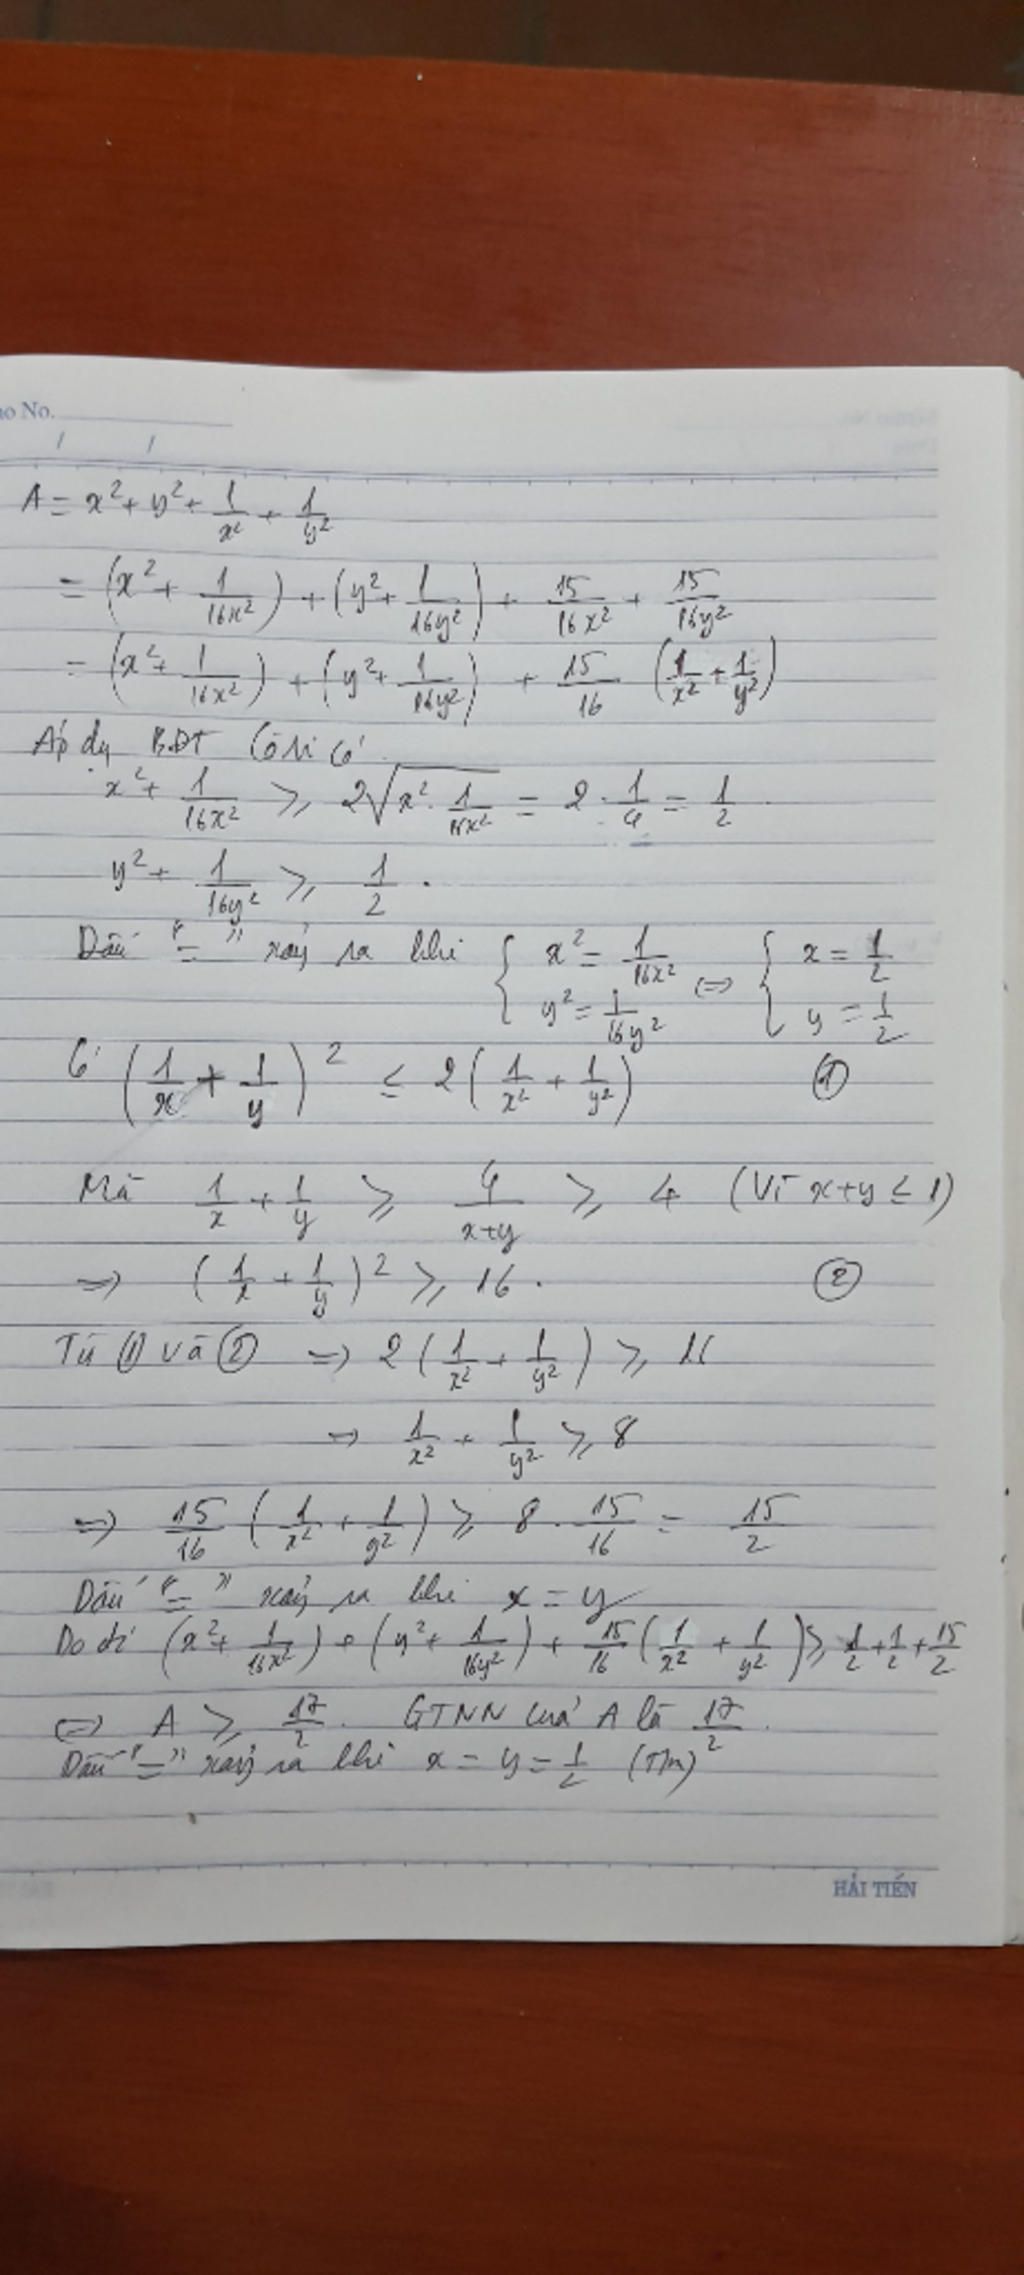 no No.
A = x² + y² + 1/x² + 1/y²
= (x² + 1/16x²) + (y² + 1/16y²) + 15/16x² + 15/16y²
= (x² + 1/16x²) + (y² + 1/16y²) + 15/16 (1/x² + 1/y²)
Áp dụ BĐT Côsi có
x² + 1/16x² ≥ 2√(x² · 1/16x²) = 2 · 1/4 = 1/2
y² + 1/16y² ≥ 1/2 .
Dấu "=" xảy ra khi { x² = 1/16x² ; y² = 1/16y² ⇔ { x = 1/2 ; y = 1/2
Có (1/x + 1/y)² ≤ 2(1/x² + 1/y²) ①
Mà 1/x + 1/y ≥ 4/(x+y) ≥ 4 (Vì x+y ≤ 1)
⇒ (1/x + 1/y)² ≥ 16. ②
Từ ① và ② ⇒ 2(1/x² + 1/y²) ≥ 16
⇒ 1/x² + 1/y² ≥ 8
⇒ 15/16 (1/x² + 1/y²) ≥ 8 · 15/16 = 15/2
Dấu "=" xảy ra khi x = y
Do đó (x² + 1/16x²) + (y² + 1/16y²) + 15/16 (1/x² + 1/y²) ≥ 1/2 + 1/2 + 15/2
⇔ A ≥ 17/2. GTNN của A là 17/2.
Dấu "=" xảy ra khi x = y = 1/2 (T/m)
HẢI TIẾN